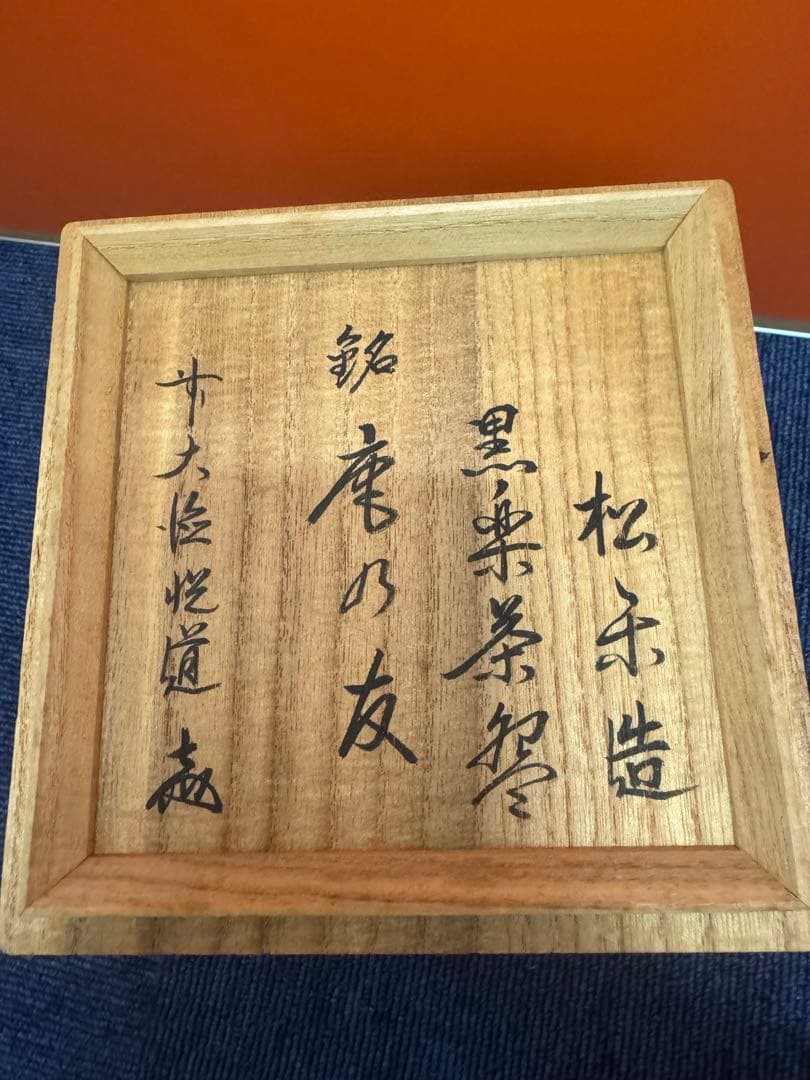 松楽造
黒楽茶盌
銘 庵乃友
前大徳悦道